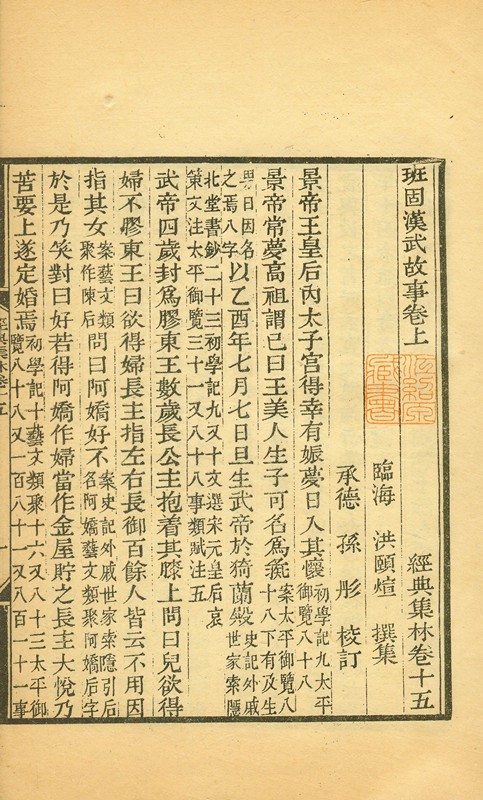 班固漢武故事卷上
經典集林卷十五
臨海 洪頤煊 撰集
承德 孫彤 校訂
景帝王皇后內太子宮得幸有娠夢日入其懷初學記九太平御覽八十八
景帝常夢高祖謂已曰王美人生子可名為彘案太平御覽八十八下有及生
男日因名之焉八字以乙酉年七月七日旦生武帝於猗蘭殿史記外戚世家索隱
北堂書鈔二十三初學記九又十文選宋元皇后哀策文注太平御覽三十一又八十八事類賦注五
武帝四歲封爲膠東王數歲長公主抱着其膝上問曰兒欲得
婦不膠東王曰欲得婦長主指左右長御百餘人皆云不用因
指其女案藝文類聚作陳后問曰阿嬌好不案史記外戚世家索隱引后名阿嬌藝文類聚阿嬌后字
於是乃笑對曰好若得阿嬌作婦當作金屋貯之長主大悅乃
苦要上遂定婚焉初學記十藝文類聚十六又八十三太平御覽八十八又一百八十一又八百一十一事
經典集林卷十五
一